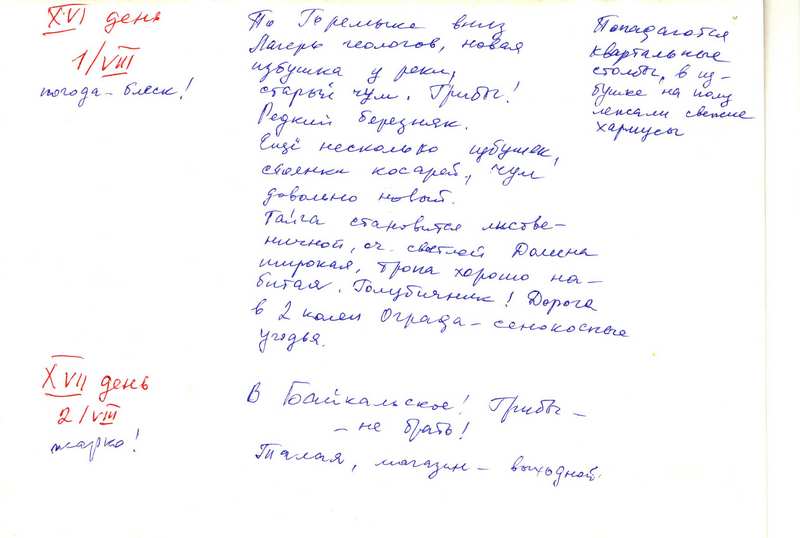 XVI день
1/VIII
погода - блеск!
По Горемыке вниз
Лагерь геологов, новая
избушка у реки,
старый чум. Грибы!
Редкий березняк.
Ещё несколько избушек,
стоянки косарей, чум
довольно новый.
Тайга становится листве-
ничной, оч. светлой Долина
широкая, тропа хорошо на-
битая. Голубичник! Дорога
в 2 колеи Ограда - сенокосные
угодья.
Попадаются
квартальные
столбы, в из-
бушке на полу
лежали свежие
хариусы
XVII день
2/VIII
жарко!
В Байкальское! Грибы -
- не брать!
Талая, магазин - выходной.